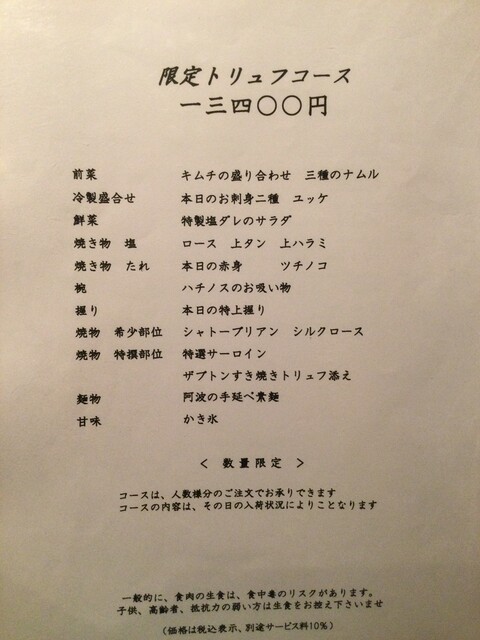 限定トリュフコース
一三四〇〇円
前菜 キムチの盛り合わせ 三種のナムル
冷製盛合せ 本日のお刺身二種 ユッケ
鮮菜 特製塩ダレのサラダ
焼き物 塩 ロース 上タン 上ハラミ
焼き物 たれ 本日の赤身 ツチノコ
椀 ハチノスのお吸い物
握り 本日の特上握り
焼物 希少部位 シャトーブリアン シルクロース
焼物 特撰部位 特選サーロイン
ザブトンすき焼きトリュフ添え
麺物 阿波の手延べ素麺
甘味 かき氷
< 数量限定 >
コースは、人数様分のご注文でお承りできます
コースの内容は、その日の入荷状況によりことなります
一般的に、食肉の生食は、食中毒のリスクがあります。
子供、高齢者、抵抗力の弱い方は生食をお控え下さいませ
(価格は税込表示、別途サービス料10%)